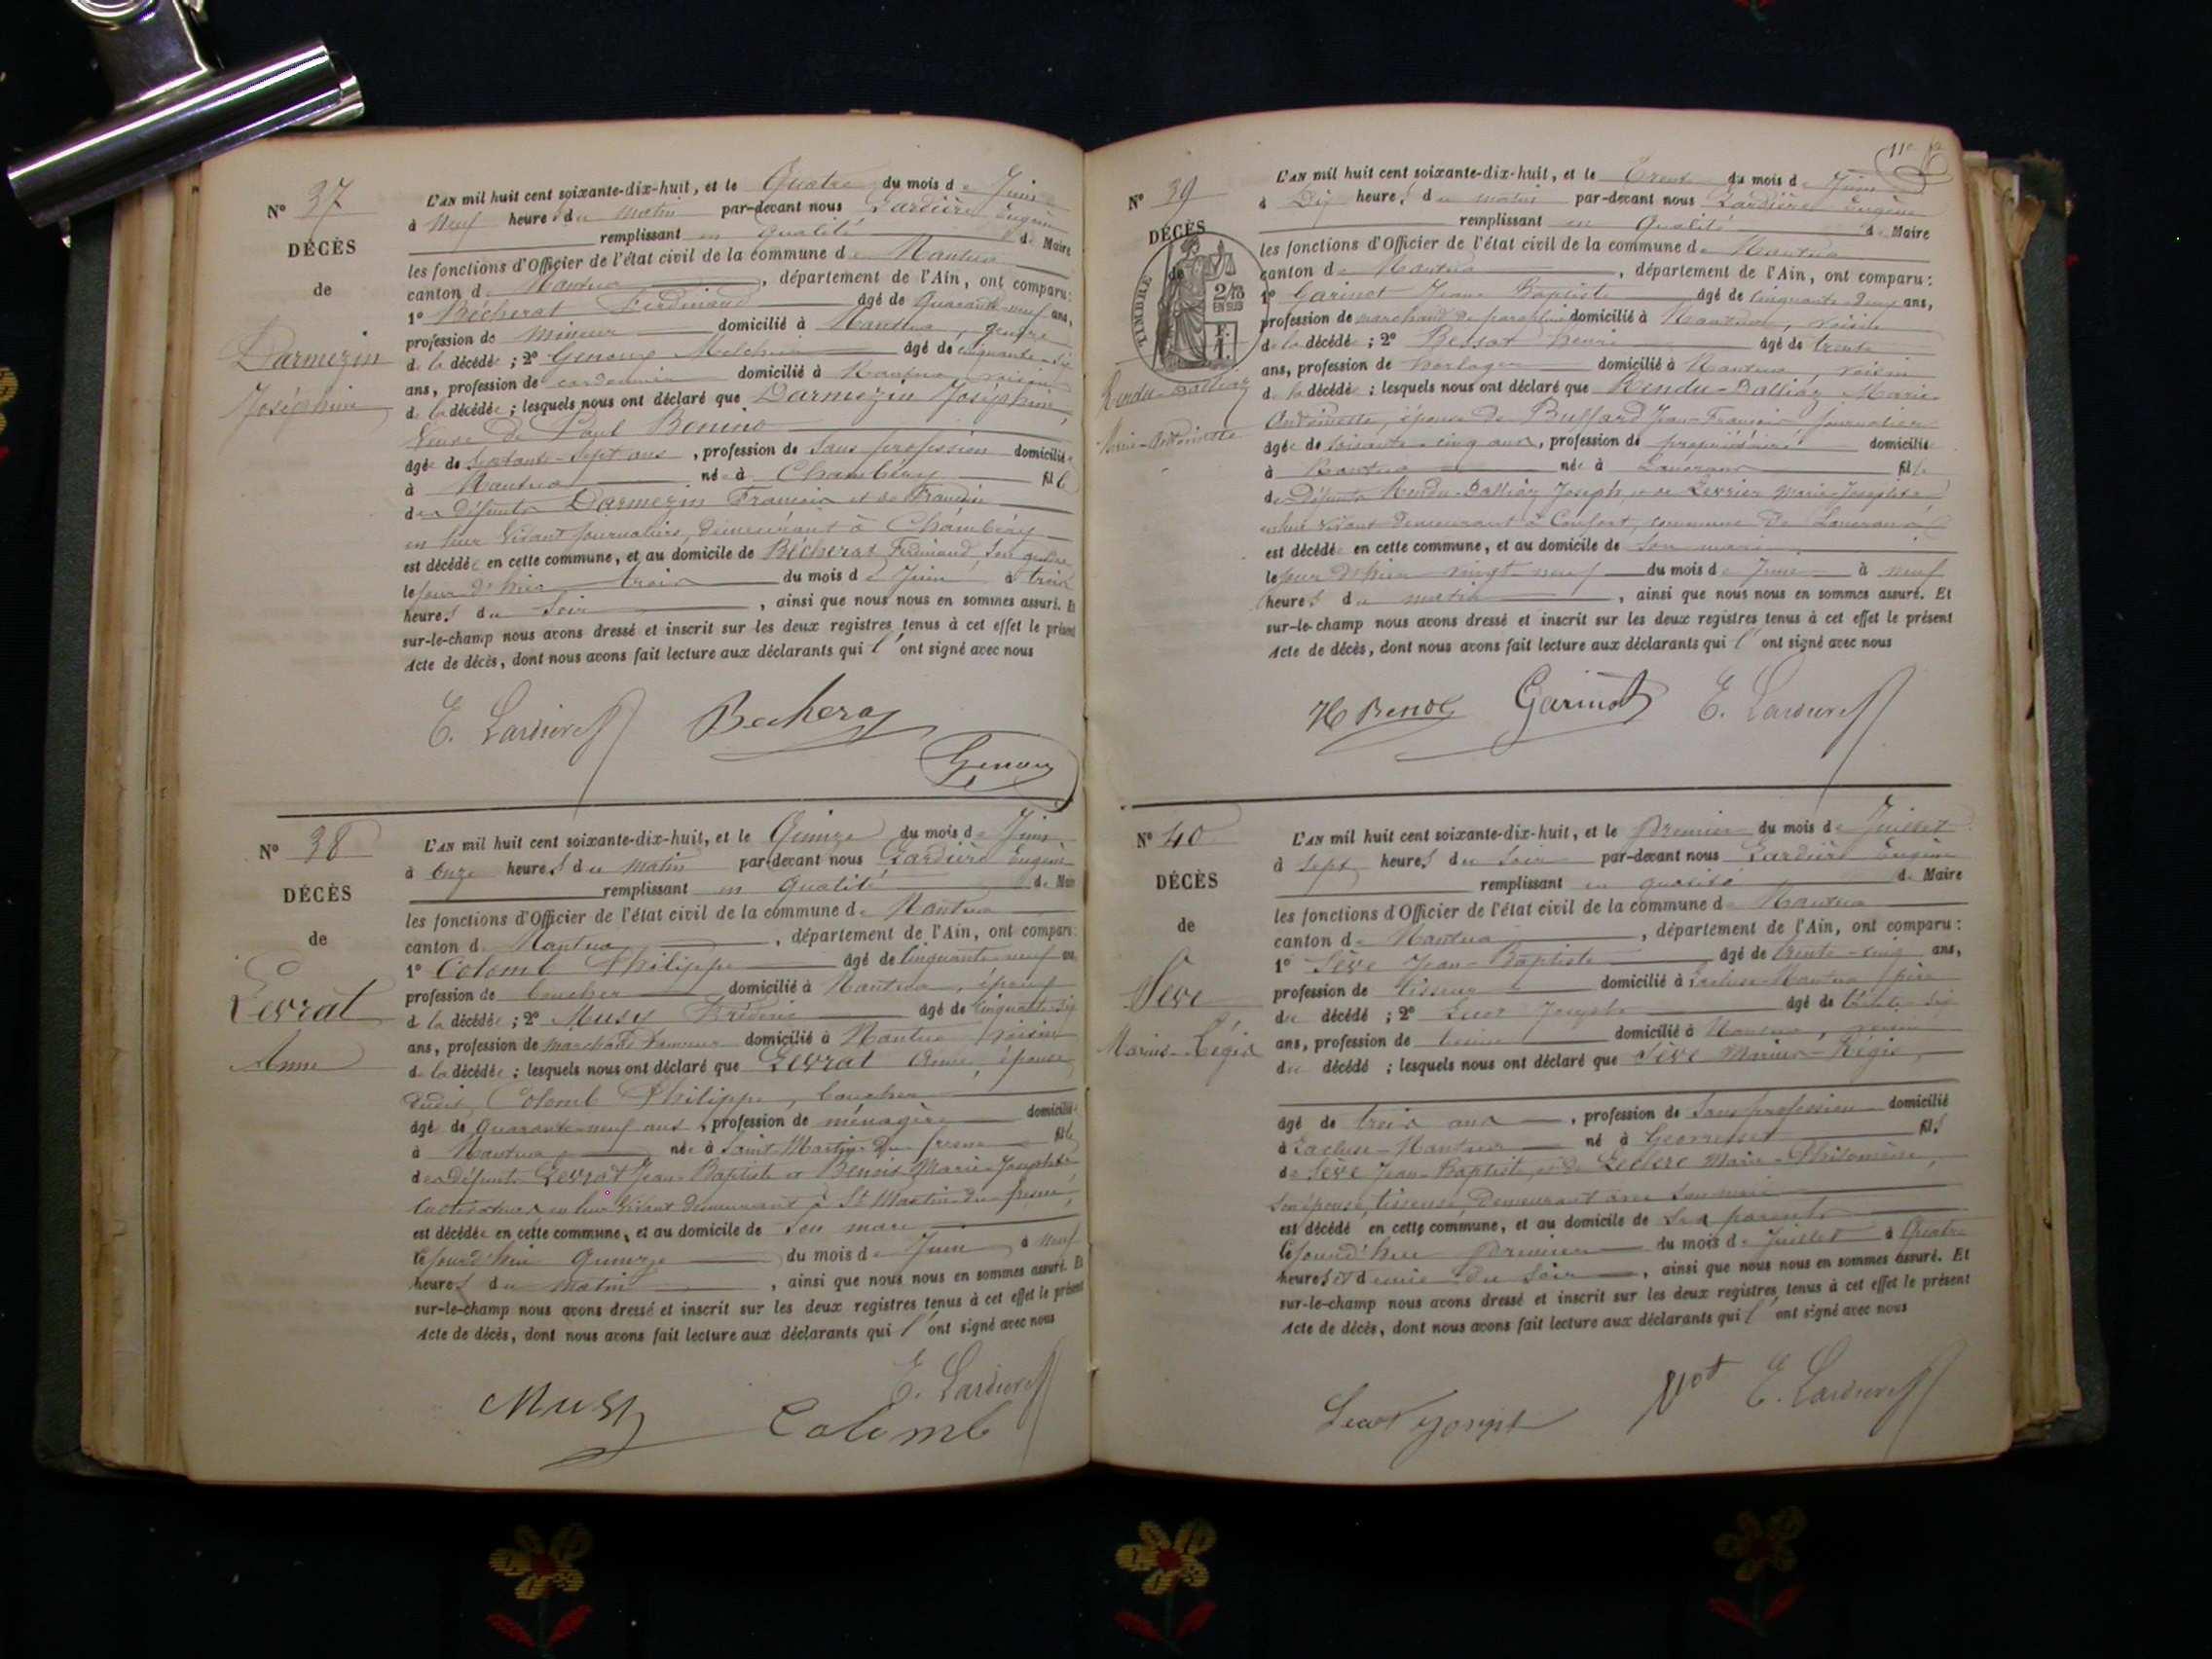 N° 37
DÉCÈS
de
Darmezin
Joséphine
L'AN mil huit cent soixante-dix-huit, et le Quatre du mois de Juin
à Neuf heures du matin par-devant nous Lardière Eugène
remplissant en qualité de Maire
les fonctions d'Officier de l'état civil de la commune de Nantua
canton de Nantua, département de l'Ain, ont comparu:
1° Bécherat Ferdinand âgé de quarante-neuf ans,
profession de mineur domicilié à Nantua, gendre
de la décédée; 2° Genoux Melchior âgé de cinquante-six
ans, profession de cordonnier domicilié à Nantua, voisin
de la décédée; lesquels nous ont déclaré que Darmezin Joséphine,
Veuve de Paul Bonino
âgée de Septante-Sept ans, profession de Sans profession domiciliée
à Nantua née à Chambéry fille
des défunts Darmezin François et de Francoise
en leur vivant journaliers, demeurant à Chambéry
est décédée en cette commune, et au domicile de Bécherat Ferdinand, son gendre
le jour d'hier trois du mois de Juin à trois
heures du Soir, ainsi que nous nous en sommes assuré. Et
sur-le-champ nous avons dressé et inscrit sur les deux registres tenus à cet effet le présent
Acte de décès, dont nous avons fait lecture aux déclarants qui l'ont signé avec nous
E. Lardière Becherat
Genoux
N° 38
DÉCÈS
de
Levrat
Anne
L'AN mil huit cent soixante-dix-huit, et le Quinze du mois de Juin
à Onze heures du matin par-devant nous Lardière Eugène
remplissant en qualité de Maire
les fonctions d'Officier de l'état civil de la commune de Nantua
canton de Nantua, département de l'Ain, ont comparu:
1° Colomb Philippe âgé de Cinquante-neuf ans
profession de boucher domicilié à Nantua, époux
de la décédée; 2° Musy Frédéric âgé de Cinquante-six
ans, profession de marchand domicilié à Nantua voisin
de la décédée; lesquels nous ont déclaré que Levrat Anne, épouse
dudit Colomb Philippe, boucher
âgée de quarante-neuf ans, profession de ménagère domiciliée
à Nantua née à Saint Martin du fresne fille
des défunts Levrat Jean-Baptiste et Benoit Marie-Josephte
Cultivateurs en leur vivant demeurant à St Martin-du-fresne,
est décédée en cette commune, et au domicile de Son mari
le jourd'hui Quinze du mois de Juin à neuf
heures du matin, ainsi que nous nous en sommes assuré. Et
sur-le-champ nous avons dressé et inscrit sur les deux registres tenus à cet effet le présent
Acte de décès, dont nous avons fait lecture aux déclarants qui l'ont signé avec nous
E. Lardière
Musy Colomb
N° 39
DÉCÈS
de
TIMBRE
Rendu-Dalliez
Marie-Antoinette
L'AN mil huit cent soixante-dix-huit, et le Trente du mois de Juin
à Dix heures du matin par-devant nous Lardière Eugène
remplissant en Qualité de Maire
les fonctions d'Officier de l'état civil de la commune de Nantua
canton de Nantua, département de l'Ain, ont comparu:
1° Garinot Jean Baptiste âgé de cinquante-deux ans,
profession de marchand de parapluies domicilié à Nantua, voisin
de la décédée; 2° henri âgé de trente
ans, profession de horloger domicilié à Nantua, voisin
de la décédée; lesquels nous ont déclaré que Rendu-Dalliez Marie
Antoinette, épouse de Buffard Jean-François journalier
âgée de soixante-cinq ans, profession de propriétaire domiciliée
à Nantua née à Lancrans fille
des défunts Rendu-Dalliez Joseph et de Levrier Marie-Josephte
en leur vivant demeurant à Confort, commune de Lancrans
est décédée en cette commune, et au domicile de son mari
le jour d'hier vingt-neuf du mois de Juin à neuf
heures du matin, ainsi que nous nous en sommes assuré. Et
sur-le-champ nous avons dressé et inscrit sur les deux registres tenus à cet effet le présent
Acte de décès, dont nous avons fait lecture aux déclarants qui l'ont signé avec nous
Garinot E. Lardière
N° 40
DÉCÈS
de
Sève
Marius-Régis
L'AN mil huit cent soixante-dix-huit, et le Premier du mois de Juillet
à Sept heures du Soir par-devant nous Lardière Eugène
remplissant en qualité de Maire
les fonctions d'Officier de l'état civil de la commune de Nantua
canton de Nantua, département de l'Ain, ont comparu:
1° Sève Jean-Baptiste âgé de trente-cinq ans,
profession de tisseur domicilié à Lacluse-Nantua père
du décédé; 2° Joseph âgé de trente-six
ans, profession de domicilié à Nantua, voisin
du décédé; lesquels nous ont déclaré que Sève Marius-Régis,
âgé de trois ans, profession de Sans profession domicilié
à Lacluse-Nantua né à Geovresset fils
de Sève Jean-Baptiste et de Leclerc Marie-Philomène,
Son épouse, tisseuse, demeurant avec Son mari
est décédé en cette commune, et au domicile de Ses parents
le jourd'hui Premier du mois de Juillet à Quatre
heures et demie du Soir, ainsi que nous nous en sommes assuré. Et
sur-le-champ nous avons dressé et inscrit sur les deux registres tenus à cet effet le présent
Acte de décès, dont nous avons fait lecture aux déclarants qui l'ont signé avec nous
E. Lardière